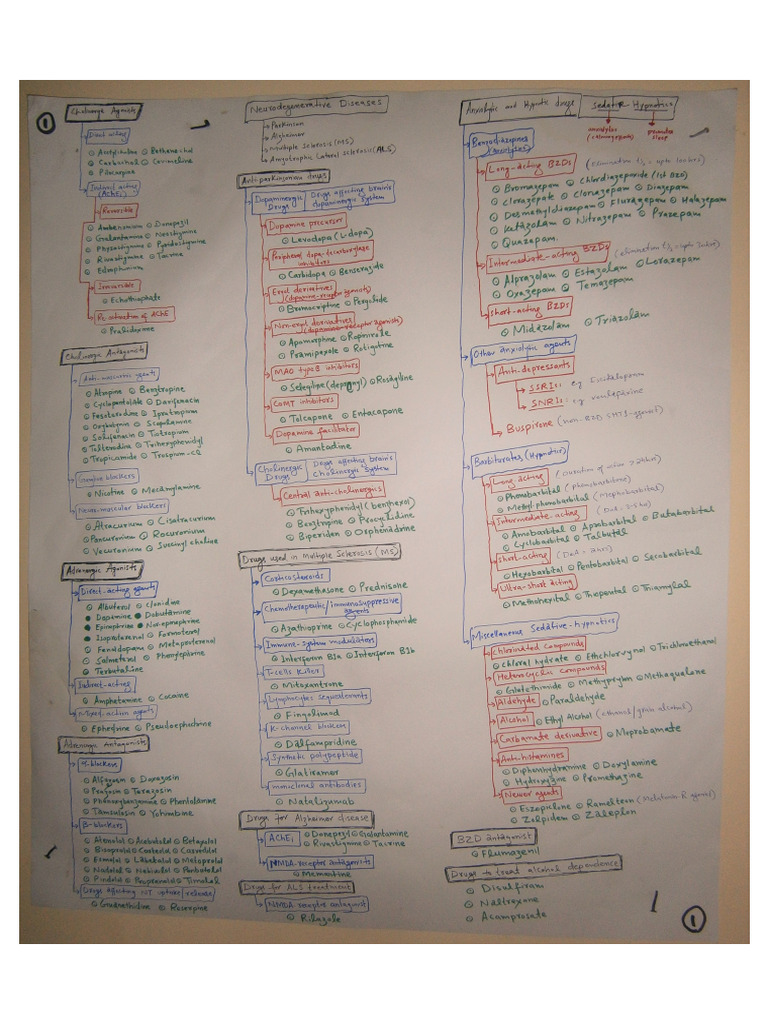 1
Cholinergic Agonists
Direct acting
Acetylcholine Bethenechol
Carbachol Cevimeline
Pilocarpine
Indirect acting
(AChEi)
Reversible
Ambenonium Donepezil
Galantamine Neostigmine
Physostigmine Pyridostigmine
Rivastigmine Tacrine
Edrophonium
Irreversible
Echothiophate
Re-activation of AChE
Pralidoxime
Cholinergic Antagonists
Anti-muscarinic agents
Atropine Benztropine
Cyclopentolate Darifenacin
Fesoterodine Ipratropium
Oxybutynin Scopolamine
Solifenacin Tiotropium
Tolterodine Trihexyphenidyl
Tropicamide Trospium-Cl
Ganglion blockers
Nicotine Mecamylamine
Neuro-muscular blockers
Atracurium Cisatracurium
Pancuronium Rocuronium
Vecuronium Succinyl choline
Adrenergic Agonists
Direct-acting agents
Albuterol Clonidine
Dopamine Dobutamine
Epinephrine Nor-epinephrine
Isoproterenol Formoterol
Fenoldopam Metaproterenol
Salmeterol Phenylephrine
Terbutaline
Indirect-acting
Amphetamine Cocaine
Mixed-action agents
Ephedrine Pseudoephedrine
Adrenergic Antagonists
α-blockers
Alfuzosin Doxazosin
Prazosin Terazosin
Phenoxybenzamine Phentolamine
Tamsulosin Yohimbine
β-blockers
Atenolol Acebutolol Betaxolol
Bisoprolol Carteolol Carvedilol
Esmolol Labetalol Metoprolol
Nadolol Nebivolol Penbutolol
Pindolol Propranolol Timolol
Drugs affecting NT uptake/release
Guanethidine Reserpine
Neurodegenerative Diseases
Parkinson
Alzheimer
Multiple Sclerosis (MS)
Amyotrophic Lateral Sclerosis (ALS)
Anti-parkinsonian drugs
Dopaminergic Drugs Drugs affecting brain's dopaminergic system
Dopamine precursor
Levodopa (L-dopa)
Peripheral dopa-decarboxylase inhibitors
Carbidopa Benserazide
Ergot derivatives
(dopamine-receptor agonists)
Bromocriptine Pergolide
Non-ergot derivatives
(dopamine-receptor agonists)
Apomorphine Ropinirole
Pramipexole Rotigotine
MAO type B inhibitors
Selegiline (deprenyl) Rasagiline
COMT inhibitors
Tolcapone Entacapone
Dopamine facilitator
Amantadine
Cholinergic Drugs Drugs affecting brain's Cholinergic system
Central anti-cholinergics
Trihexyphenidyl (benzhexol)
Benztropine Procyclidine
Biperiden Orphenadrine
Drugs used in Multiple Sclerosis (MS)
Corticosteroids
Dexamethasone Prednisone
Chemotherapeutic/immunosuppressive agents
Azathioprine Cyclophosphamide
Immune-system modulators
Interferon B1a Interferon B1b
T-cells killer
Mitoxantrone
Lymphocytes sequesterants
Fingolimod
K-channel blockers
Dalfampridine
Synthetic polypeptide
Glatiramer
monoclonal antibodies
Natalizumab
Drugs for Alzheimer disease
AChEi
Donepezil Galantamine
Rivastigmine Tacrine
NMDA-receptor antagonists
Memantine
Drugs for ALS treatment
NMDA receptor antagonist
Riluzole
Anxiolytic and Hypnotic drugs Sedative Hypnotics
anxiolytic
sleep
Benzodiazepines
(Anxiolytics)
Long-acting BZDs
Bromazepam Chlordiazepoxide (1st BZD)
Clorazepate Clonazepam Diazepam
Desmethyldiazepam Flurazepam Halazepam
Ketazolam Nitrazepam Prazepam
Quazepam
Intermediate-acting BZDs
Alprazolam Estazolam Lorazepam
Oxazepam Temazepam
Short-acting BZDs
Midazolam Triazolam
Other anxiolytic agents
Anti-depressants
SSRIs: eg Escitalopram
SNRIs: eg venlafaxine
Buspirone
Barbiturates (Hypnotics)
Long-acting
Phenobarbital (phenobarbitone)
Methyl phenobarbital (Mephobarbital)
Intermediate-acting
Amobarbital Aprobarbital Butabarbital
Cyclobarbital Talbutal
Short-acting
Hexobarbital Pentobarbital Secobarbital
Ultra-short acting
Methohexital Thiopental Thiamylal
Miscellaneous Sedative-hypnotics
Chlorinated compounds
Chloral hydrate Ethchlorvynol Trichlorethanol
Heterocyclic compounds
Glutethimide Methyprylon Methaqualone
Aldehyde Paraldehyde
Alcohol Ethyl Alcohol (ethanol/grain alcohol)
Carbamate derivative Meprobamate
Anti-histamines
Diphenhydramine Doxylamine
Hydroxyzine Promethazine
Newer agents
Eszopiclone Ramelteon (Melatonin R agonist)
Zolpidem Zaleplon
BZD antagonist
Flumazenil
Drugs to treat alcohol dependence
Disulfiram
Naltrexone
Acamprosate
1